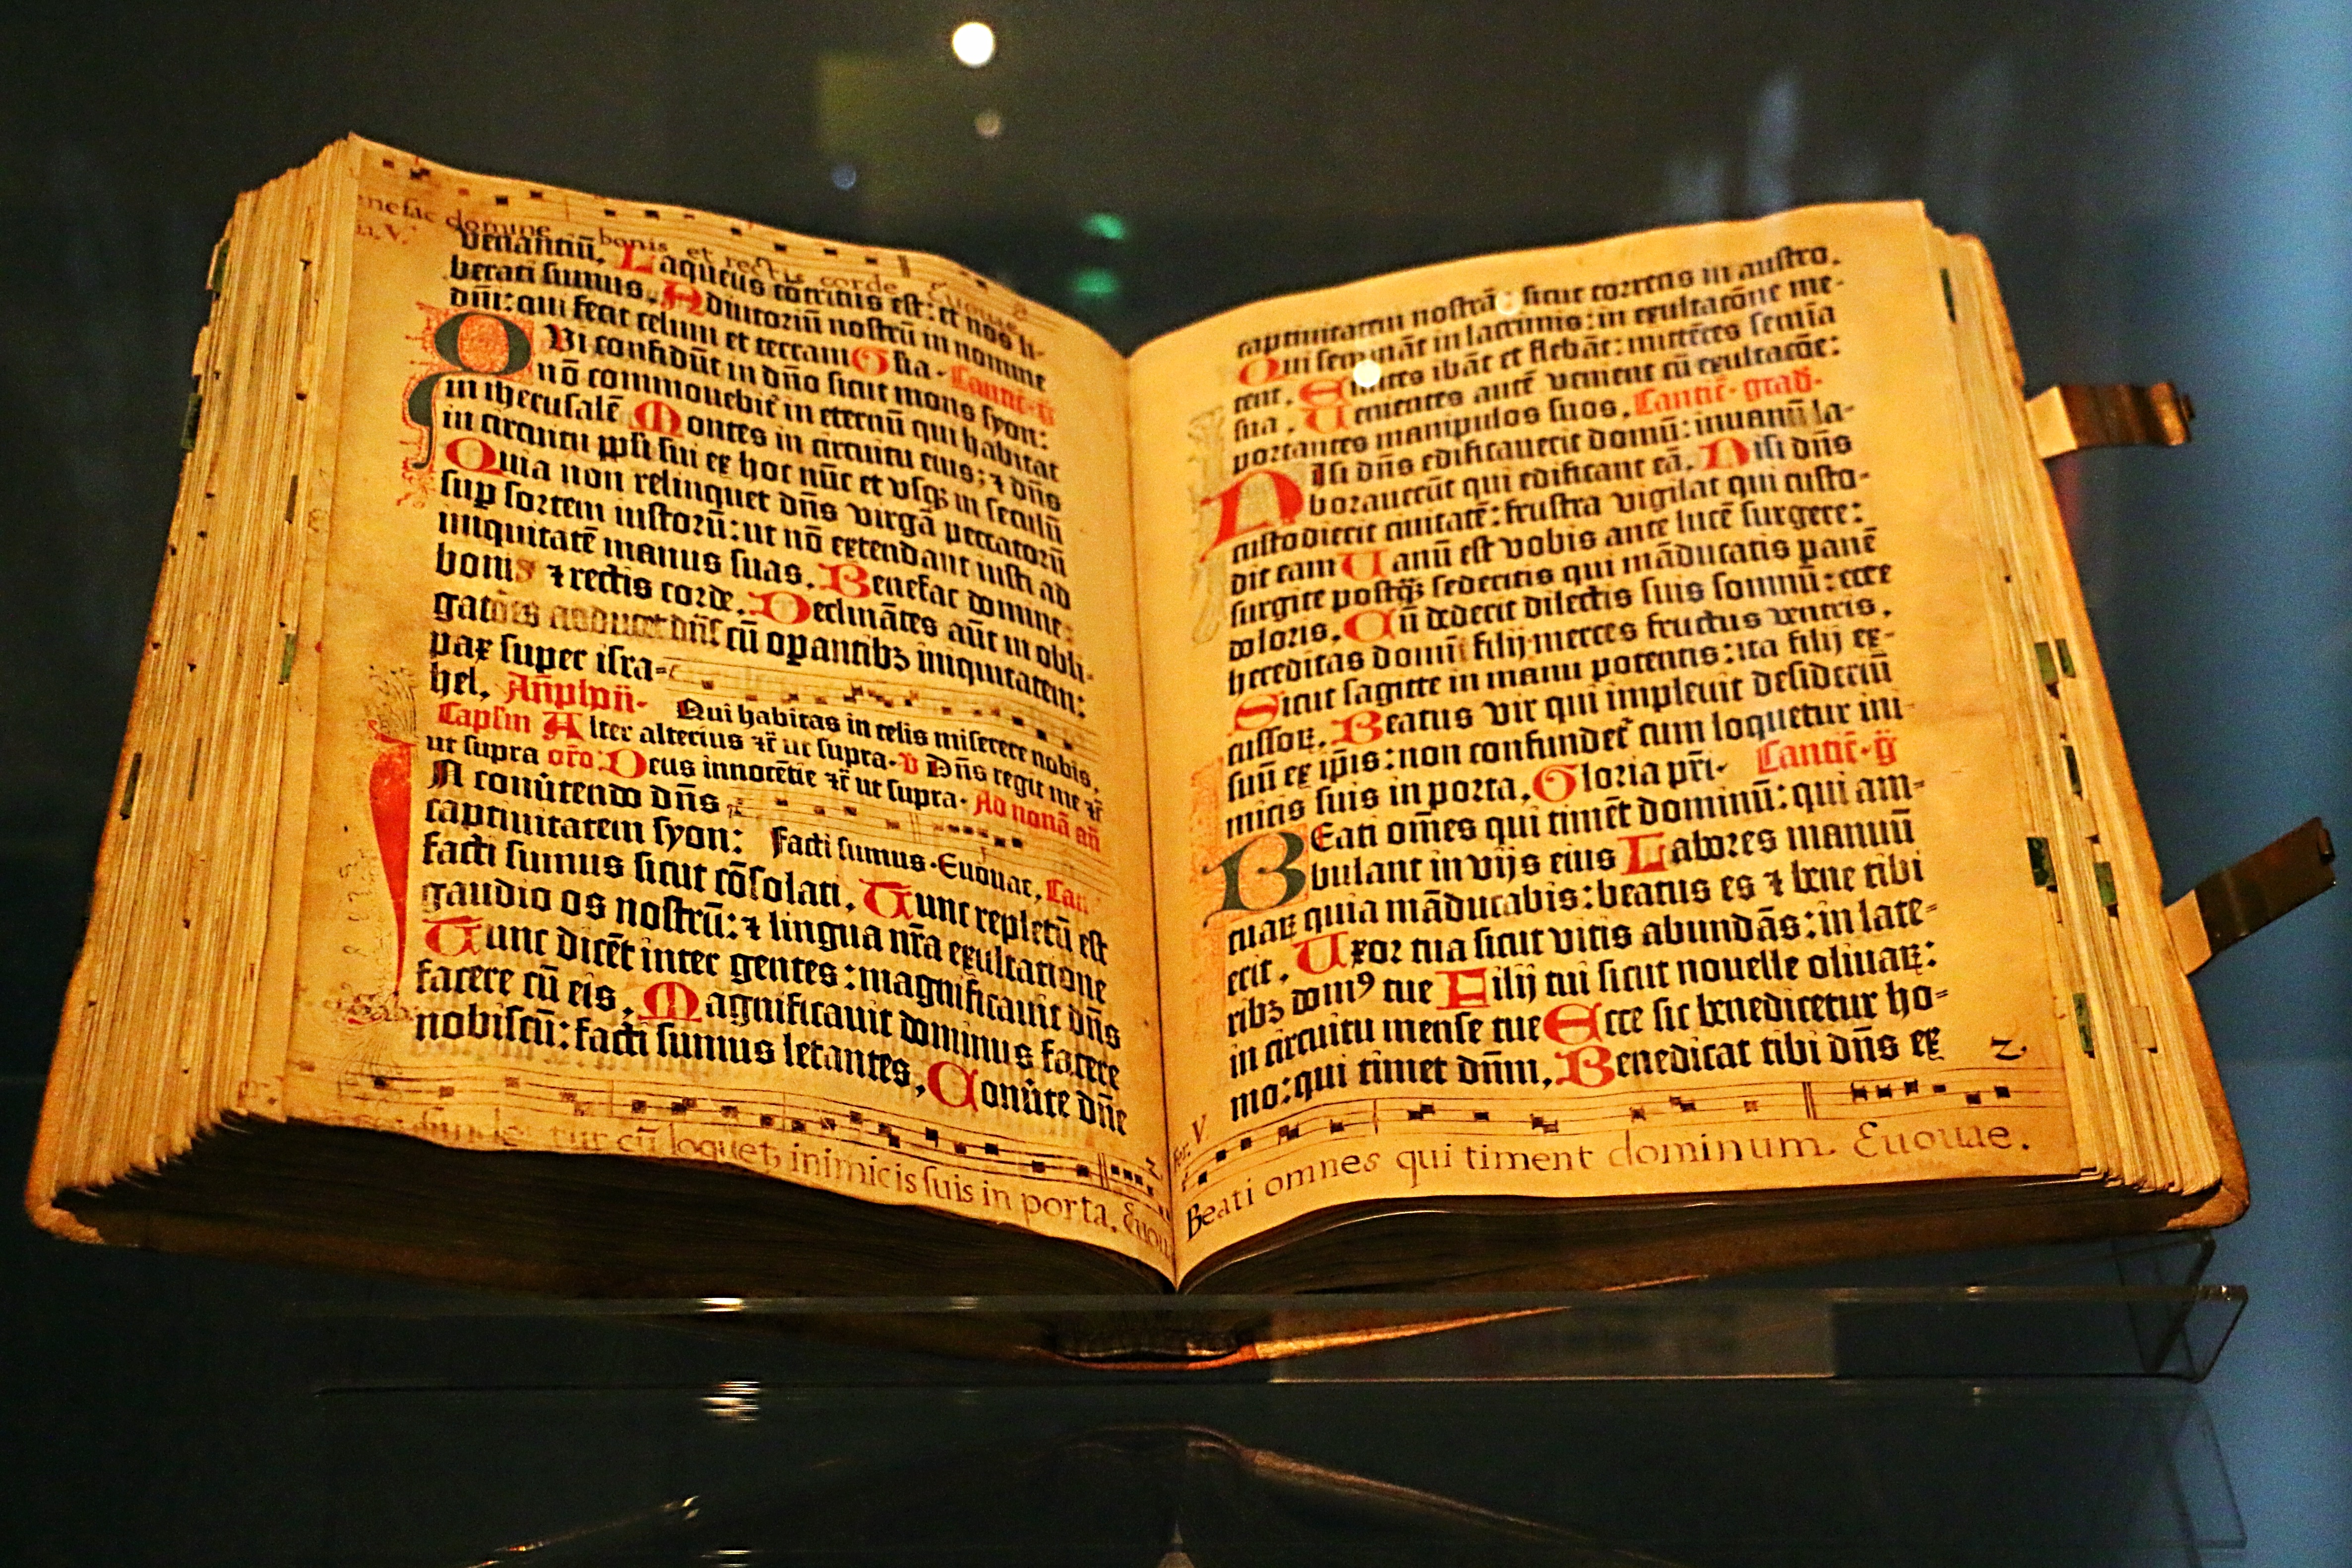 nefac domine bonis et rectis corde Euouae
venantiū. Laqueus cōtritus est: et nos li-
berati sumus. Adiutoriū nostrū in nomine
dn̄i: qui fecit celum et terram Gl̄ia. Cantic̄. g̃
QVi confidūt in dn̄o sicut mons syon:
nō commouebit̄ in eternū qui habitat
in iherusalē Montes in circuitu eius: ⁊ dn̄s
in circuitu ppl̄i sui ex hoc nūc et vsqꝫ in seculū
Quia non relinquet dn̄s virgā peccatorū
sup sortem iustorū: ut nō extendant iusti ad
iniquitatē manus suas. Benefac domine:
bonis ⁊ rectis corde. Declinātes aūt in obli-
gatōes adducet dn̄s cū opantibꝫ iniquitatem:
pax super isra-
hel. Qui habitas in celis miserere nobis.
Capl̄m Alter alterius ⁊c̄ ut supra. v Dn̄s regit me ⁊c̄
ut supra or̄o: Deus innocētie ⁊c̄ ut supra. Ad nonā an̄
IN conūtendo dn̄s
captiuitatem syon: Facti sumus. Euouae. Can
facti sumus sicut cōsolati. Tunc repletū est
gaudio os nostrū: ⁊ lingua nr̄a exultatione
Tunc dicēt inter gentes: magnificauit dn̄s
facere cū eis. Magnificauit dominus facere
nobiscū: facti sumus letantes. Conūte dn̄e
tur cū loquet, inimicis suis in porta. Euou
captiuitatem nostrā: sicut torrens in austro.
Qui semināt in lacrimis: in exultatōne me-
tent. Euntes ibāt et flebāt: mittētes semīa
sua. Uenientes autē venient cū exultatōe:
portantes manipulos suos. Cantic̄. grad̄.
NIsi dn̄s edificauerit domū: inuanū la-
borauerūt qui edificant eā. Nisi dn̄s
custodierit ciuitatē: frustra vigilat qui custo-
dit eam Uanū est vobis ante lucē surgere:
surgite postqꝫ sederitis qui māducatis panē
doloris. Cū dederit dilectis suis somnū: ecce
hereditas domī filij: merces fructus ventris.
Sicut sagitte in manu potentis: ita filij ex-
cussoꝝ. Beatus vir qui impleuit desideriū
suū ex ip̄is: non confundet̄ cum loquetur ini-
micis suis in porta. Gloria pr̄i. Cantic̄. g̃
BEati om̄es qui timēt dominū: qui am-
bulant in vijs eius Labores manuū
tuaꝝ quia māducabis: beatus es ⁊ bene tibi
erit. Uxor tua sicut vitis abundās: in late-
ribꝫ domꝰ tue Filij tui sicut nouelle oliuaꝝ:
in circuitu mense tue Ecce sic benedicetur ho-
mo: qui timet dn̄m. Benedicat tibi dn̄s ex
Beati omnes qui timent dominum. Euouae.